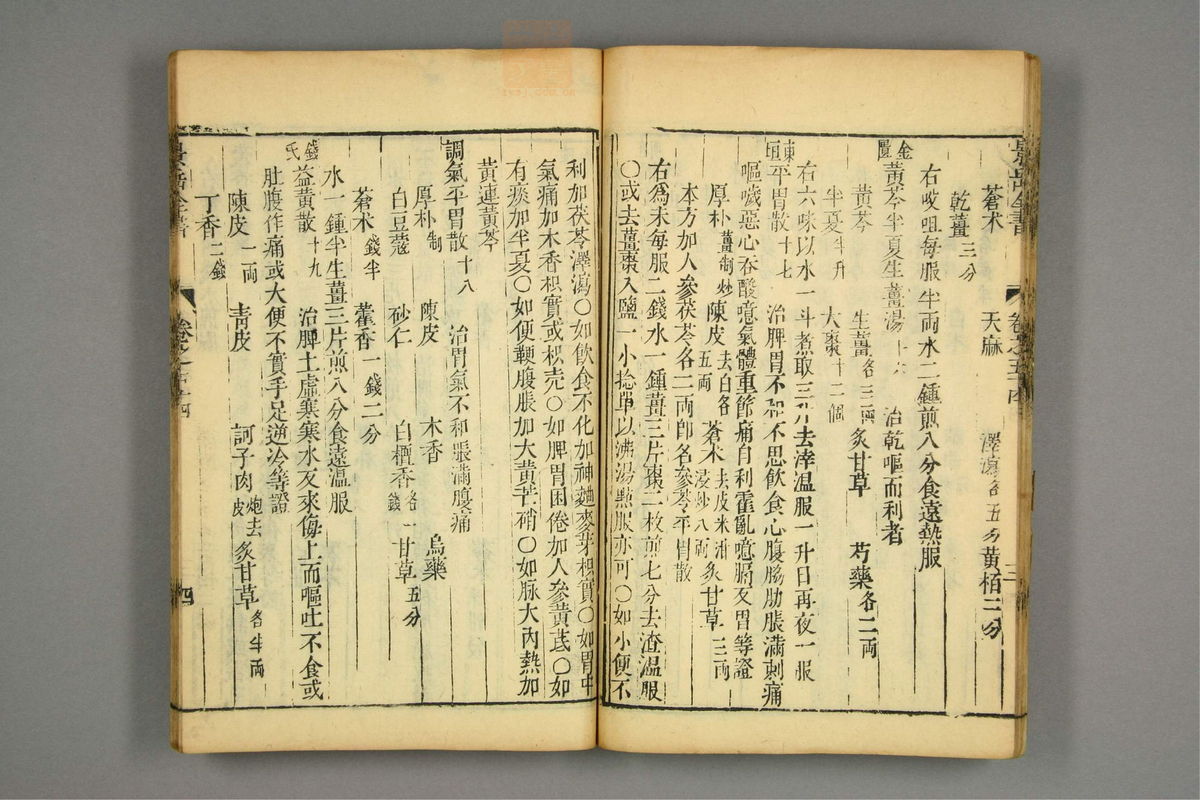 蒼术 天麻 澤瀉各五分 黃栢二分
乾薑三分
右㕮咀每服半両水二鍾煎八分食遠熱服
金匱黃芩半夏生薑湯十六 治乾嘔而利者
黃芩 生薑各三両 炙甘草 芍藥各二両
半夏半升 大棗十二個
右六味以水一斗煮取三升去滓温服一升日再夜一服
東垣平胃散十七 治脾胃不和不思飲食心腹脇肋脹滿刺痛
嘔噦惡心吞酸噫氣體重節痛自利霍亂噫膈反胃等證
厚朴薑制炒 陳皮去白各五両 蒼术去皮米泔浸炒八両 炙甘草三両
本方加人參茯苓各二両即名參苓平胃散
右爲末每服二錢水一鍾薑三片棗二枚煎七分去渣温服
○或去薑棗入鹽一小捻單以沸湯㸃服亦可○如小便不
利加茯苓澤瀉○如飲食不化加神麯麥芽枳實○如胃中
氣痛加木香枳實或枳壳○如脾胃困倦加人參黃茋○如
有痰加半夏○如便鞕腹脹加大黃芒硝○如脉大內熱加
黃連黃芩
調氣平胃散十八 治胃氣不和脹滿腹痛
厚朴制 陳皮 木香 烏藥
白豆蔻 砂仁 白檀香各一錢 甘草五分
蒼术錢半 藿香一錢二分
水一鍾半生薑三片煎八分食遠温服
錢氏益黃散十九 治脾土虛寒寒水反來侮土而嘔吐不食或
肚腹作痛或大便不實手足逆冷等證
陳皮一両 青皮 訶子肉炮去皮 炙甘草各半両
丁香二錢
景岳全書
卷之五十四
三
景岳全書
卷之五十四
四